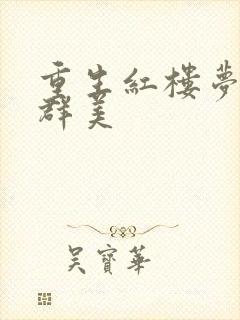 重生紅樓夢
群美
吳寶華